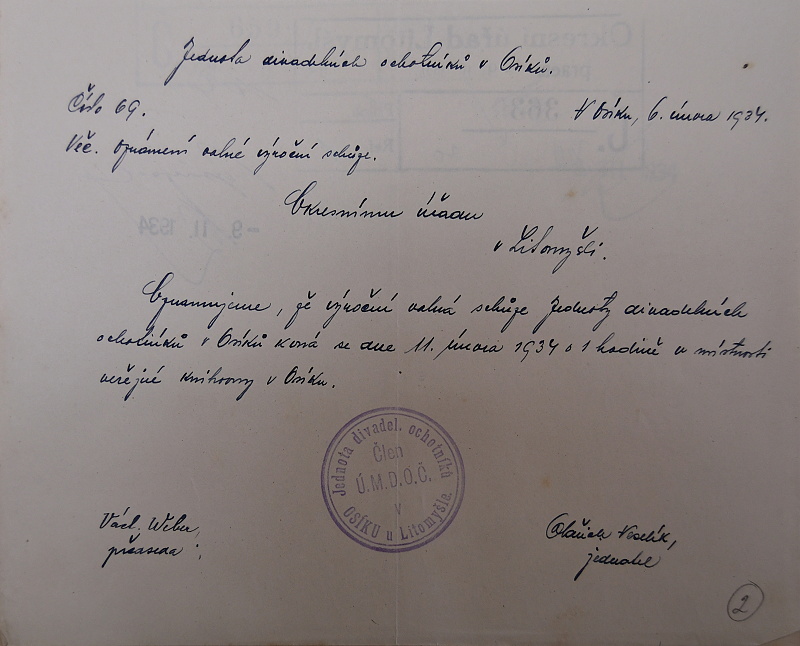 Jednota divadelních ochotníků v Osíku.
Číslo 69.
V Osíku, 6. února 1934.
Věc. oznámení valné výroční schůze.
Okresnímu úřadu
v Litomyšli.
Oznamujeme, že výroční valná schůze Jednoty divadelních
ochotníků v Osíků koná se dne 11. února 1934 o 1 hodině v místnosti
veřejné knihovny v Osíku.
Jednota divadel. ochotníků
Člen
Ú.M.D.O.Č.
v
OSÍKU u Litomyšle.
Václ. Weber,
předseda
Veselík,
jednatel
2